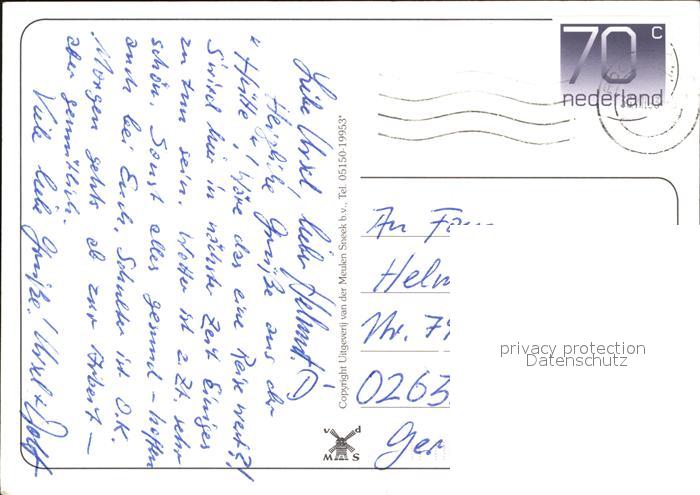 Liebe Ursel, lieber Helmut!
Herzliche Grüße aus der
"Hütte"! Wäre das eine Reise wert?!
Soviel hier in nächster Zeit Einiges
zu tun sein. Wetter ist z. Zt. sehr
schön. Sonst alles gesund – hoffen
auch bei Euch. Schulter ist O.K.
Morgen gehts ab zur Arbeit –
aber gemütlich.
Viele liebe Grüße! Ursel + Rolf
Copyright Uitgeverij van der Meulen Sneek b.v., Tel. 05150-19953*
v d
M S
70 c
nederland
An Fam
Helm
Nr. 74
0263
Ger
privacy protection
Datenschutz